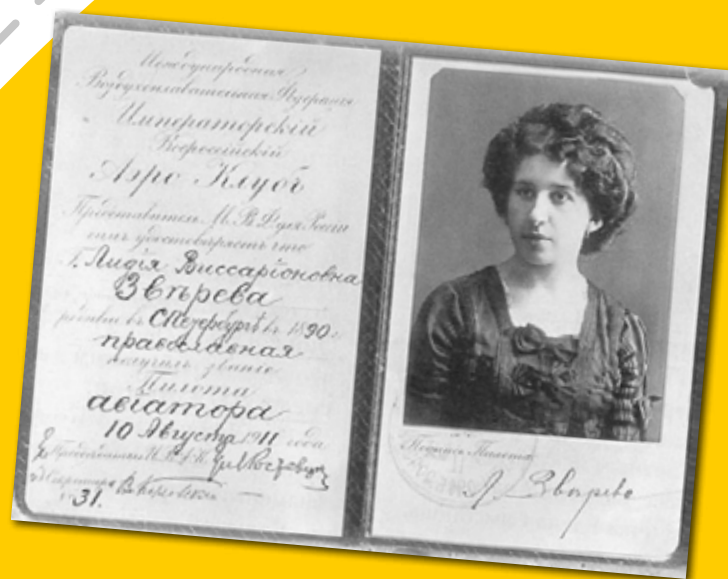 Международная
Воздухоплавательная Федерация
Императорскій
Всероссійскій
Аэро Клубъ
Представитель М. В. Ф. для Россіи
симъ удостовѣряетъ что
Г. Лидія Виссаріоновна
Звѣрева
въ С.Петербургѣ въ 1890 г.
православная
получилъ званіе
Пилота
авіатора
10 Августа 1911 года
31.
Подпись Пилота
Л. Звѣрева